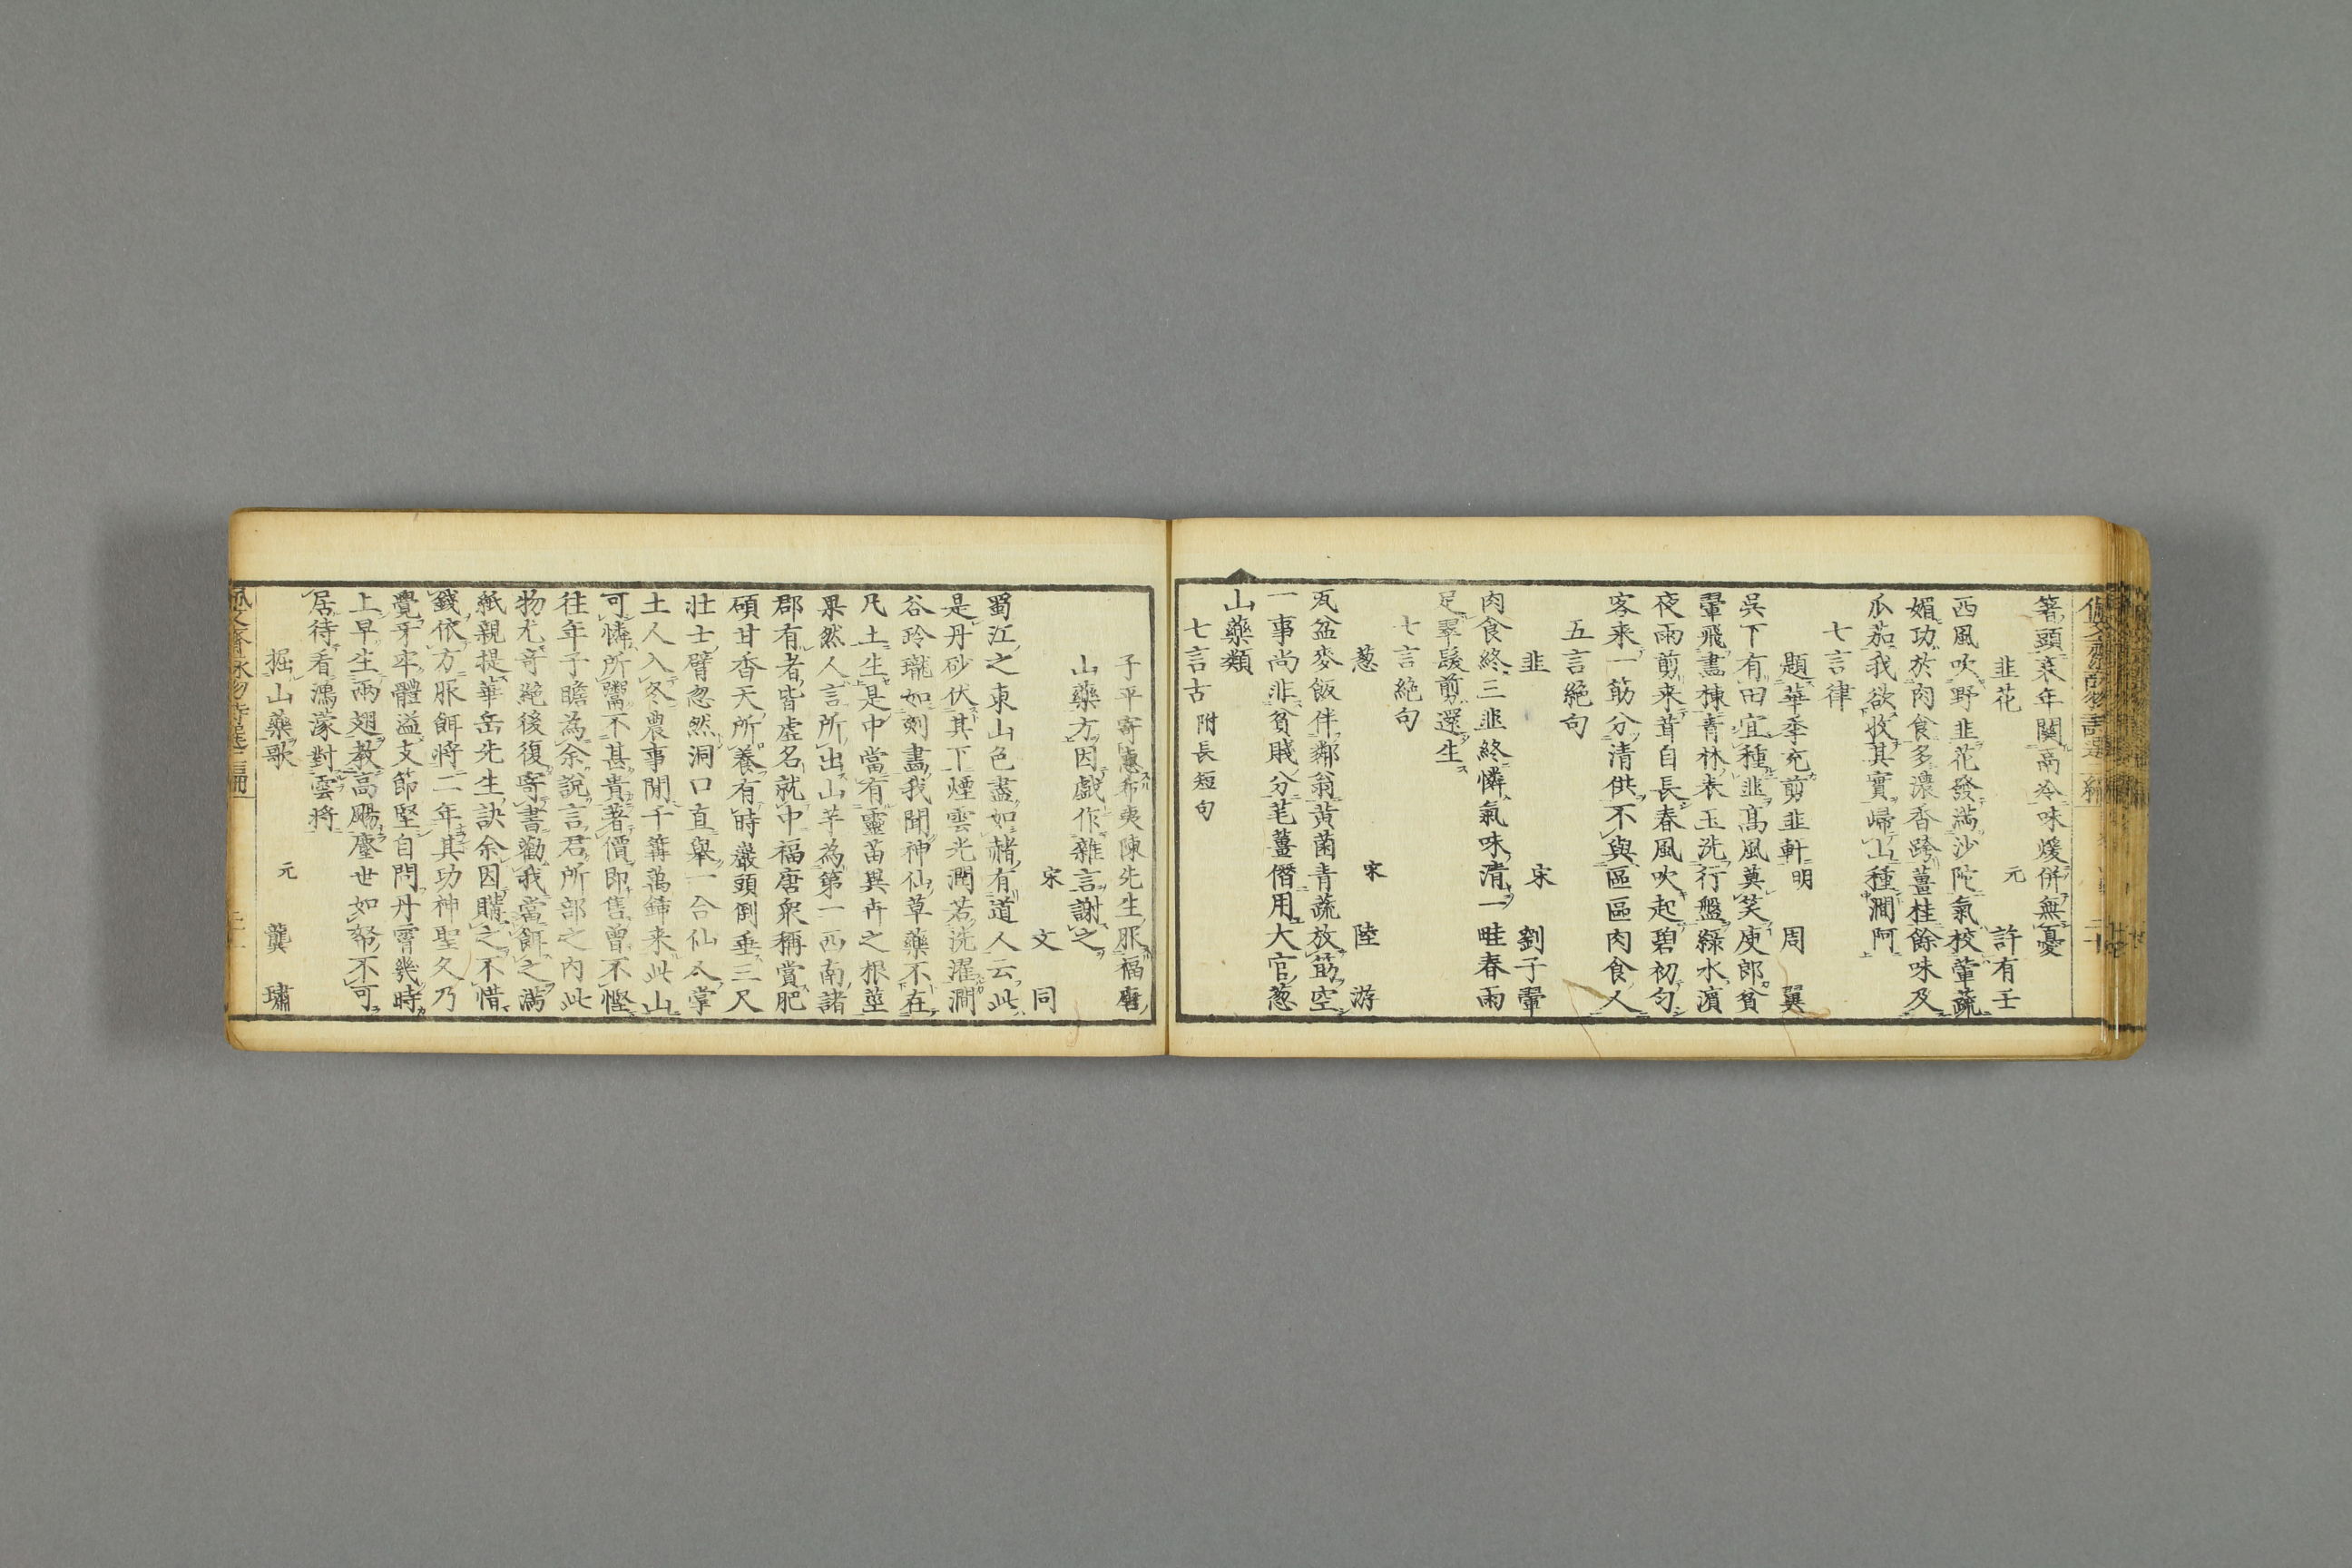 箸頭衰年關鬲冷味煖併無憂
韭花 元 許有壬
西風吹野韭花發滿沙陀氣校葷蔬
媚功於肉食多濃香跨薑桂餘味及
瓜茄我欲收其實歸山種澗阿
七言律
題華季充剪韭軒 明 周翼
吳下有田宜種韭高風莫笑庾郎貧
翬飛畫棟青林表玉洗行盤綠水濵
夜雨剪来茸自長春風吹起碧初匀
客来一筯分清供不與區區肉食人
五言絕句
韭 宋 劉子翬
肉食終三韭終憐氣味清一畦春雨
足翠髮剪還生
七言絕句
葱 宋 陸游
瓦盆麥飯伴鄰翁黃菌青蔬放筯空
一事尚非貧賤分芼薑僭用大官葱
山藥類
七言古 附長短句
子平寄惠希夷陳先生服福唐
山藥方因戲作雜言謝之
宋 文同
蜀江之東山色盡如赭有道人云此
是丹砂伏其下煙雲光潤若洗濯澗
谷玲瓏如刻畫我聞神仙草藥不在
凡土生是中當有靈苗異卉之根莖
果然人言所出山芋為第一西南諸
郡有者皆虛名就中福唐衆稱賞肥
碩甘香天所養有時巖頭倒垂三尺
壯士臂忽然洞口直舉一合仙人掌
土人入冬農事閒千篝萬鍤来此山
可憐所鬻不甚貴著價即售曾不慳
往年子瞻為余說言君所部之內此
物尤奇絕後復寄書勸我當餌之滿
紙親提華岳先生訣余因購之不惜
錢依方服餌將二年其功神聖久乃
覺牙牢體溢支節堅自問丹霄幾時
上早生兩翅教高颺塵世如帑不可
居待看鴻濛對雲將
掘山藥歌 元 龔璛